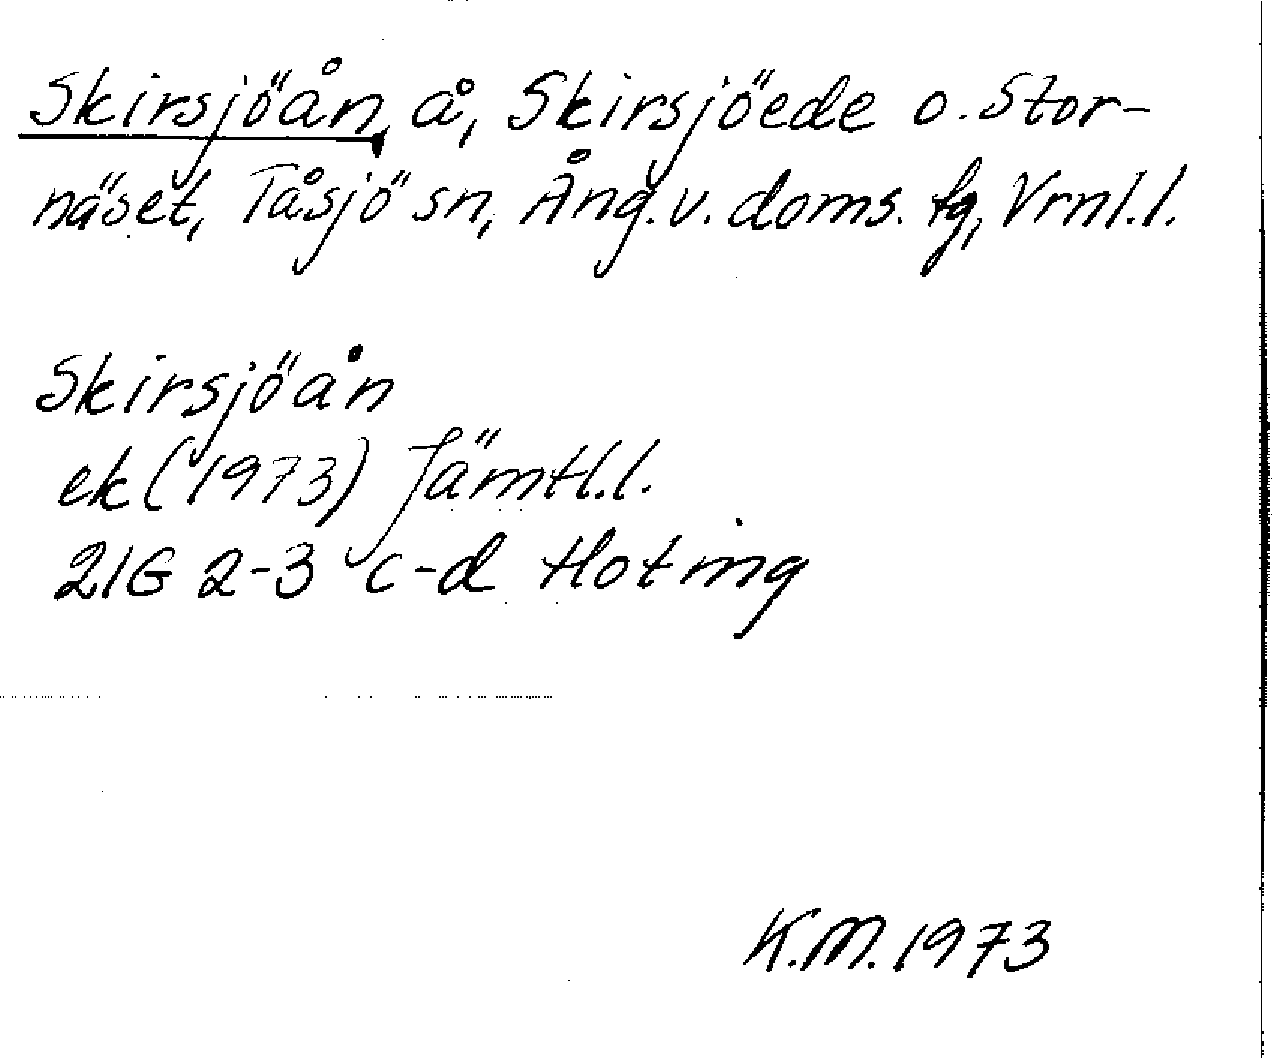 Skirsjöån, å, Skirsjöede o. Stor-
näset, Tåsjö sn, Ång. v. doms. fg, Vrnl.l.
Skirsjöån
ek (1973) Jämtl.l.
21G 2-3 c-d Hoting
K.M. 1973